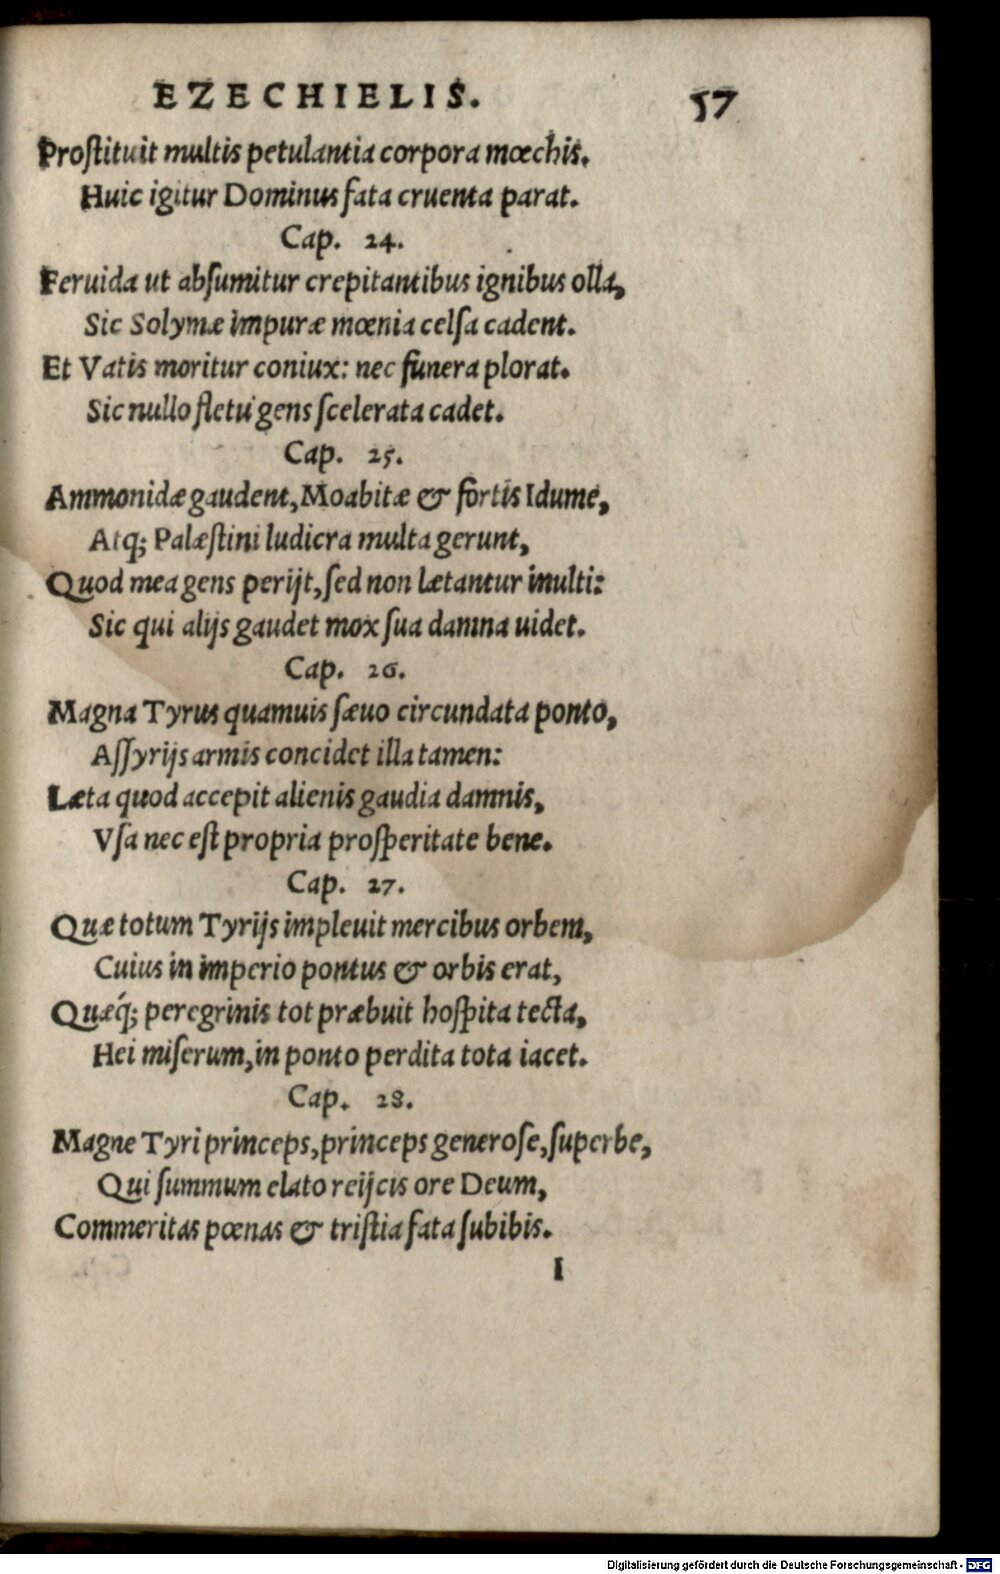 EZECHIELIS. 57
Proſtituit multis petulantia corpora mœchis.
Huic igitur Dominus fata cruenta parat.
Cap. 24.
Feruida ut abſumitur crepitantibus ignibus olla,
Sic Solymæ impuræ mœnia celſa cadent.
Et Vatis moritur coniux: nec funera plorat.
Sic nullo fletu gens ſcelerata cadet.
Cap. 25.
Ammonidæ gaudent, Moabitæ & fortis Idume,
Atq; Palæſtini ludicra multa gerunt,
Quod mea gens perijt, ſed non lætantur inulti:
Sic qui alijs gaudet mox ſua damna uidet.
Cap. 26.
Magna Tyrus quamuis ſæuo circundata ponto,
Aſſyrijs armis concidet illa tamen:
Læta quod accepit alienis gaudia damnis,
Vſa nec eſt propria proſperitate bene.
Cap. 27.
Quæ totum Tyrijs impleuit mercibus orbem,
Cuius in imperio pontus & orbis erat,
Quæq́; peregrinis tot præbuit hoſpita tecta,
Hei miſerum, in ponto perdita tota iacet.
Cap. 28.
Magne Tyri princeps, princeps generoſe, ſuperbe,
Qui ſummum elato reijcis ore Deum,
Commeritas pœnas & triſtia fata ſubibis.
I
Digitalisierung gefördert durch die Deutsche Forschungsgemeinschaft - DFG